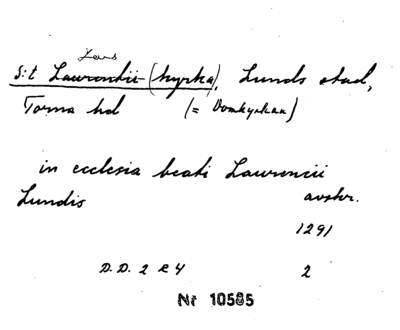 Lars
S:t Laurentii (kyrka), Lunds stad,
Torna hd (= Domkyrkan)
in ecclesia beati Laurencii
Lundis avskr.
1291
D.D. 2 R 4 2
Nr 10585